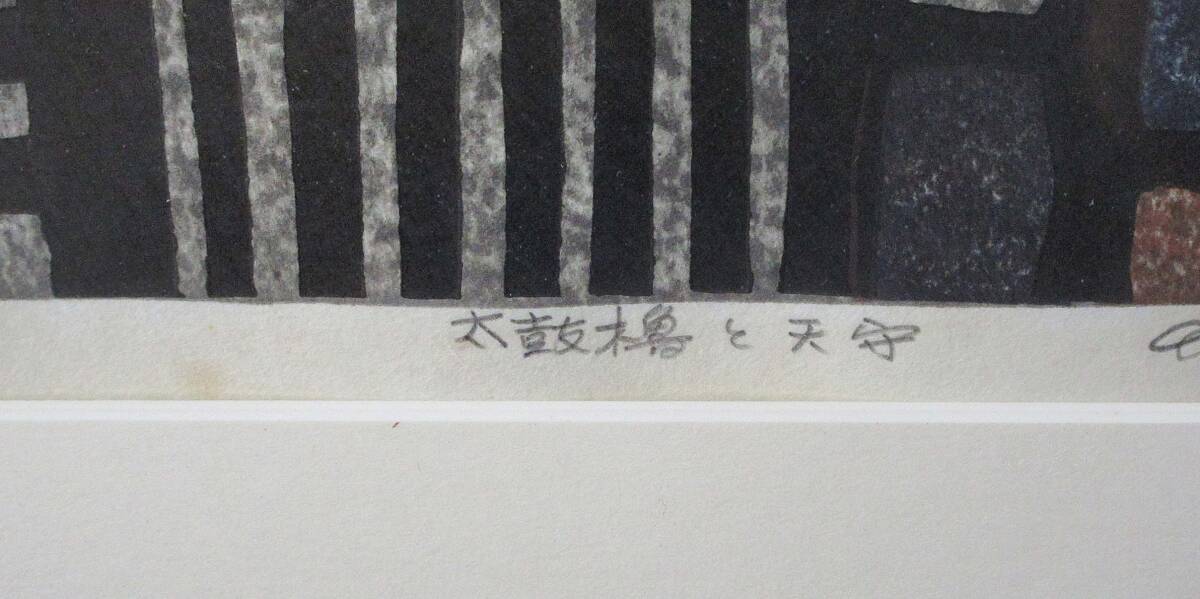 太鼓櫓と天守